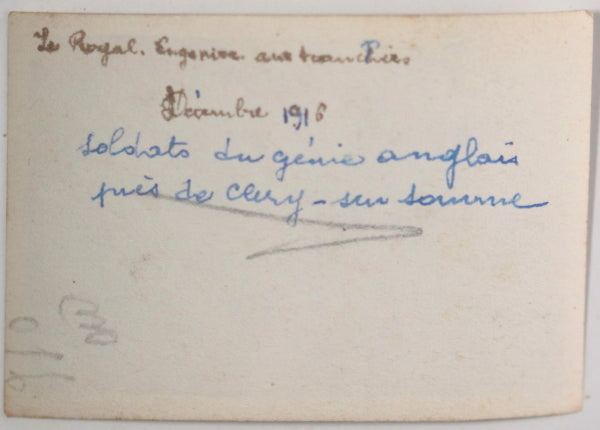 Le Royal. Engenire aux tranchies
Décembre 1916
soldats du génie anglais
près de Clery - sur somme